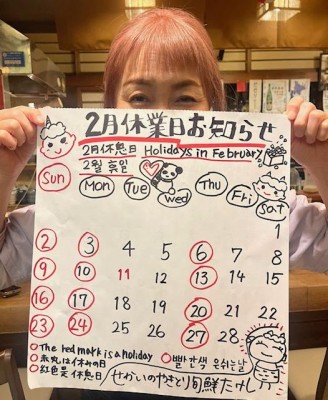 2月休業日お知らせ
2月休息日 Holidays in February
2월 휴일
Sun Mon Tue Wed Thu Fri Sat
1
2 3 4 5 6 7 8
9 10 11 12 13 14 15
16 17 18 19 20 21 22
23 24 25 26 27 28
The red mark is a holiday
赤丸は休みの日 빨간색 은쉬는날
紅色是休息日/せかいのやきとり旬鮮たけし